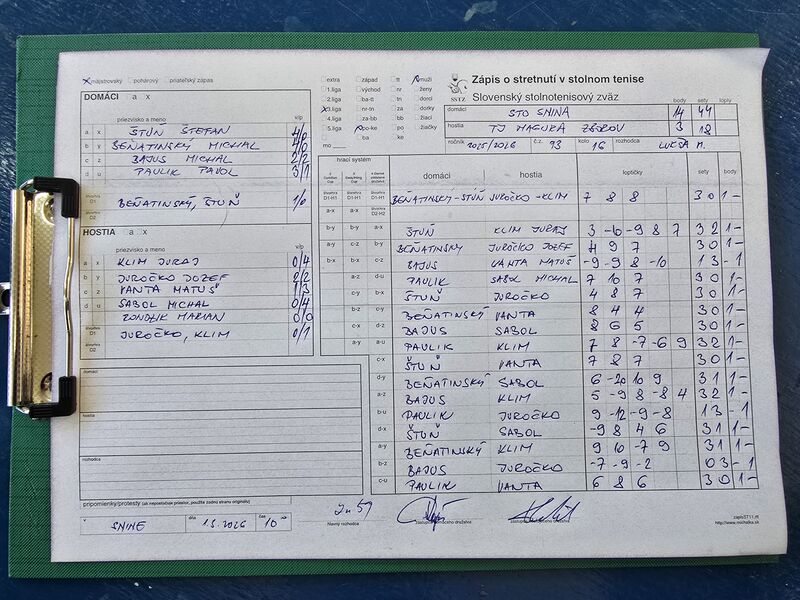 x májstrovský pohárový priateľský zápas
DOMÁCI a x
priezvisko a meno v/p
a x ŠTUŇ ŠTEFAN 4/0
b y BEŇATINSKÝ MICHAL 4/0
c z BAJUS MICHAL 2/2
d u PAULIK PAVOL 3/1
štvorhra D1 BEŇATINSKÝ, ŠTUŇ 1/0
D2
HOSTIA a x
priezvisko a meno v/p
a x KLIM JURAJ 0/4
b y JUROČKO JOZEF 2/2
c z VANTA MATÚŠ 1/3
d u SABOL MICHAL 0/4
MARIAN 0/0
JUROČKO, KLIM 0/1
domáci
hostia
rozhodca
pripomienky/protesty (ak nepostačuje priestor, použite zadnú stranu originálu)
v SNINE dňa 1.3.2026 čas 10⁰⁰
extra západ tt muži
1.liga východ nr ženy
2.liga ba-tt tn dorci
3.liga nr-tn za dorky
4.liga za-bb bb žiaci
5.liga po-ke po žiačky
ba ke
mo
Zápis o stretnutí v stolnom tenise
Slovenský stolnotenisový zväz
SSTZ
body sety lopty
domáci STO SNINA 14 44
hostia TJ MAGURA ZBOROV 3 18
ročník 2025/2026 č. 93 kolo 16 rozhodca LUKŠA M.
hrací systém
domáci hostia loptičky sety body
BEŇATINSKÝ-ŠTUŇ JUROČKO-KLIM 7 8 8 3 0 1 -
ŠTUŇ KLIM JURAJ 3 -6 -9 8 7 3 2 1 -
BEŇATINSKÝ JUROČKO JOZEF 4 9 7 3 0 1 -
BAJUS VANTA MATÚŠ -9 -9 8 -10 1 3 - 1
PAULIK SABOL MICHAL 7 10 7 3 0 1 -
ŠTUŇ JUROČKO 4 8 7 3 0 1 -
BEŇATINSKÝ VANTA 8 4 4 3 0 1 -
BAJUS SABOL 8 6 5 3 0 1 -
PAULIK KLIM 7 8 -7 -6 9 3 2 1 -
ŠTUŇ VANTA 7 8 7 3 0 1 -
BEŇATINSKÝ SABOL 6 -20 10 9 3 1 1 -
BAJUS KLIM 5 -9 8 -8 4 3 2 1 -
PAULIK JUROČKO 9 -12 -9 -8 1 3 - 1
ŠTUŇ SABOL -9 8 4 6 3 1 1 -
BEŇATINSKÝ KLIM 9 10 -7 9 3 1 1 -
BAJUS JUROČKO -7 -9 -2 0 3 - 1
PAULIK VANTA 6 8 6 3 0 1 -
hlavný rozhodca
zapisST11.rtf
http://www.michalka.sk